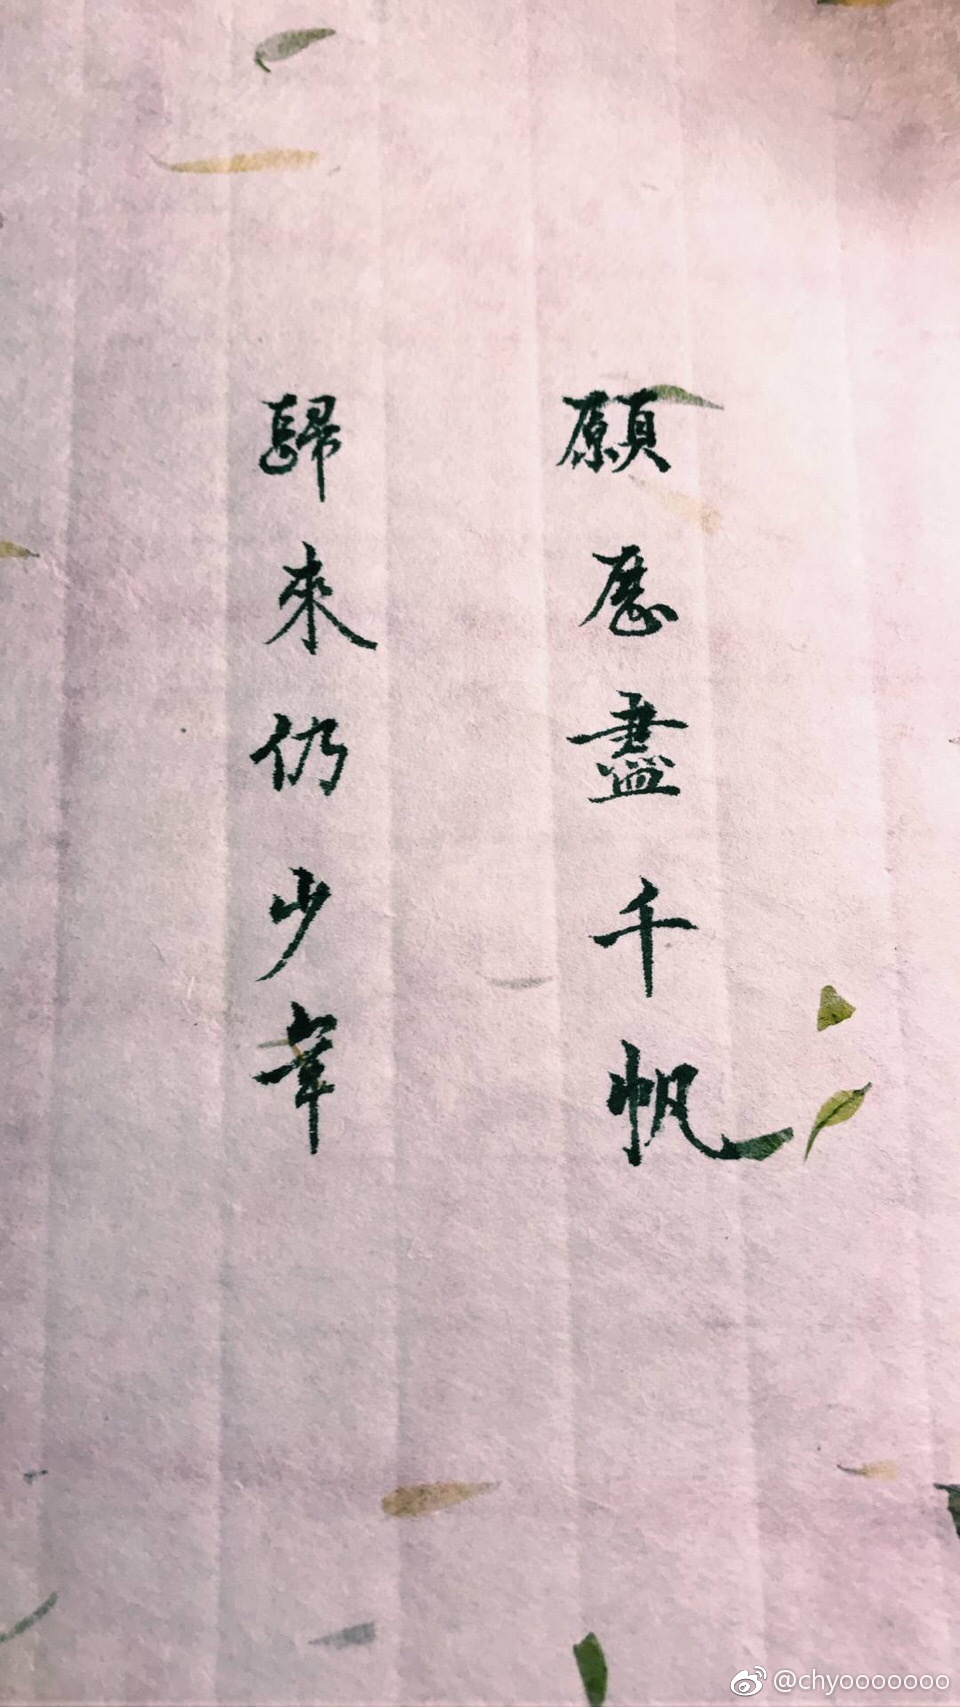 願歷盡千帆
歸來仍少年
@chyooooooo